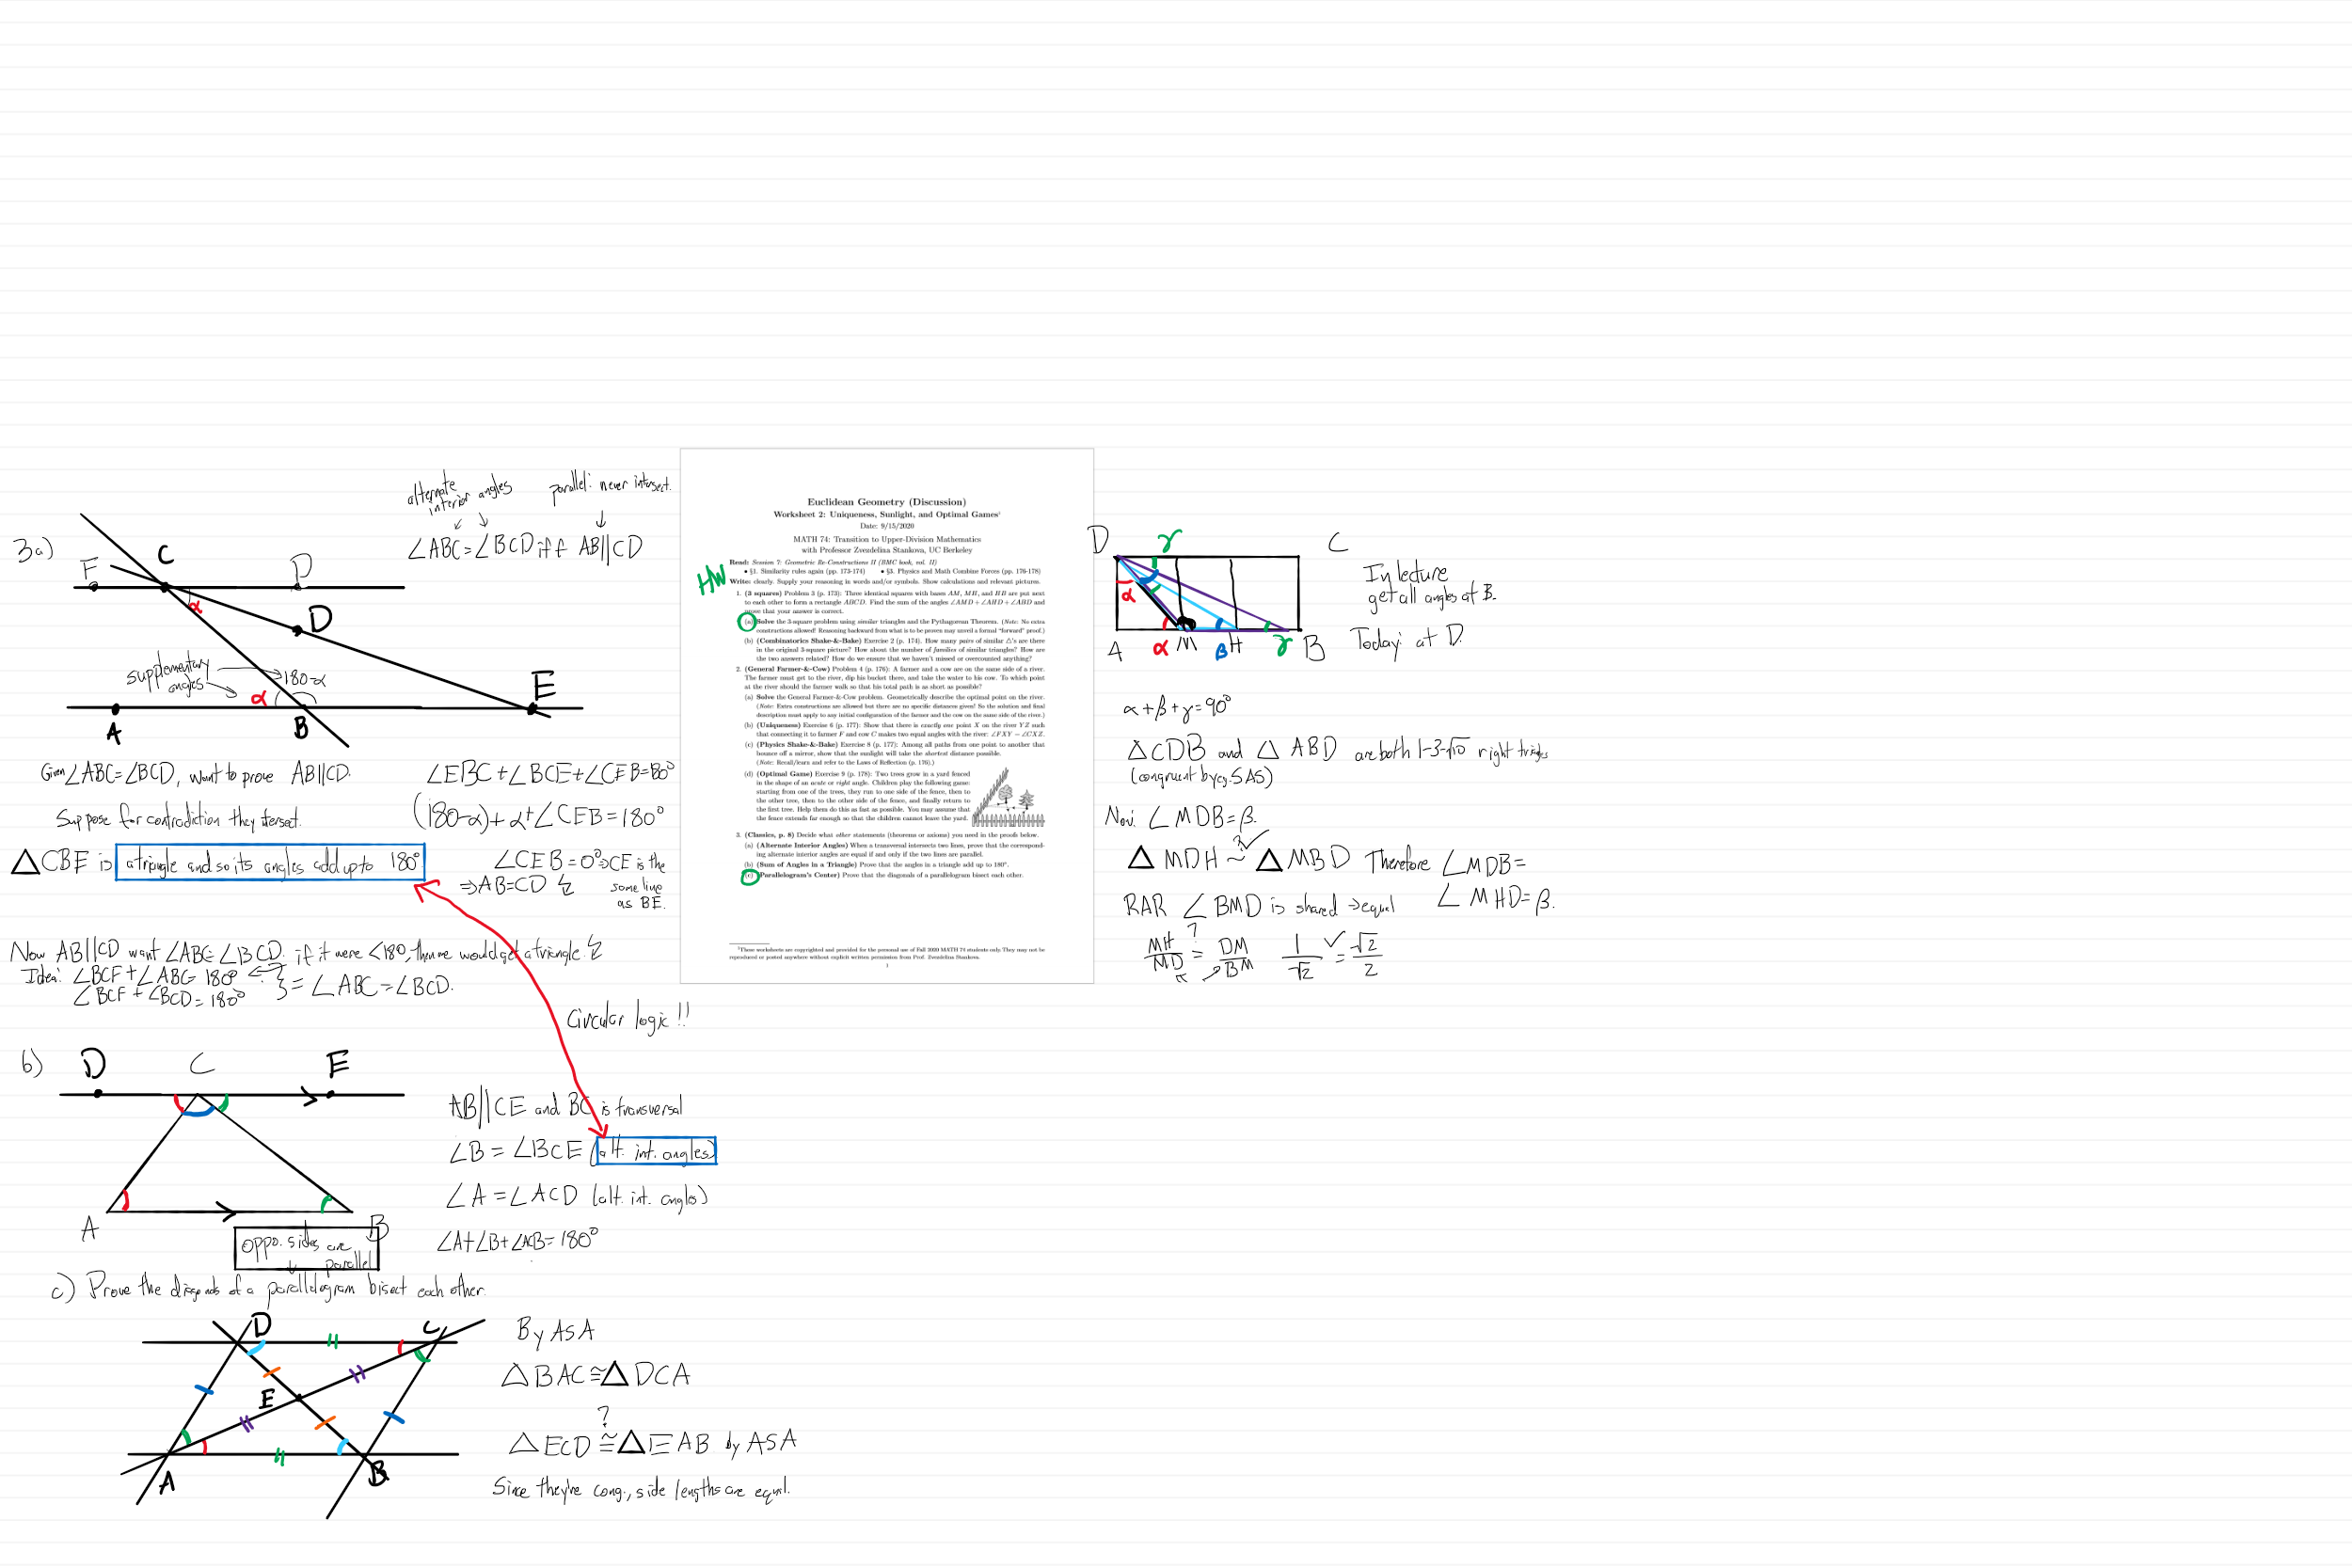 3a)
F
C
P
α
D
supplementary
angles
α
180-α
E
A
B
alternate
interior angles
parallel: never intersect.
∠ABC=∠BCD iff AB||CD
Given ∠ABC=∠BCD, want to prove AB||CD.
Suppose for contradiction they intersect.
△CBF is a triangle and so its angles add up to 180°
∠EBC+∠BCE+∠CEB=180°
(180-α)+α+∠CEB=180°
∠CEB=0°⇒CE is the
same line
as BE.
⇒AB=CD ↯
Now AB||CD want ∠ABC=∠BCD. if it were <180, then we would get a triangle. ↯
Idea: ∠BCF+∠ABC=180°
∠BCF+∠BCD=180°
}=∠ABC=∠BCD.
Circular logic!!
b)
D
C
E
A
B
AB||CE and BC is transversal
∠B=∠BCE (alt. int. angles)
∠A=∠ACD (alt. int. angles)
∠A+∠B+∠ACB=180°
oppo. sides are
parallel
c) Prove the diagonals of a parallelogram bisect each other.
D
C
E
A
B
By ASA
△BAC≅△DCA
?
△ECD≅△EAB by ASA
Since they're cong., side lengths are equal.
HW
Euclidean Geometry (Discussion)
Worksheet 2: Uniqueness, Sunlight, and Optimal Games¹
Date: 9/15/2020
MATH 74: Transition to Upper-Division Mathematics
with Professor Zvezdelina Stankova, UC Berkeley
Read: Session 7: Geometric Re-Constructions II (BMC book, vol. II)
• §1. Similarity rules again (pp. 173-174) • §3. Physics and Math Combine Forces (pp. 176-178)
Write: clearly. Supply your reasoning in words and/or symbols. Show calculations and relevant pictures.
1. (3 squares) Problem 3 (p. 173): Three identical squares with bases AM, MH, and HB are put next
to each other to form a rectangle ABCD. Find the sum of the angles ∠AMD+∠AHD+∠ABD and
prove that your answer is correct.
(a) Solve the 3-square problem using similar triangles and the Pythagorean Theorem. (Note: No extra
constructions allowed! Reasoning backward from what is to be proven may unveil a formal "forward" proof.)
(b) (Combinatorics Shake-&-Bake) Exercise 2 (p. 174). How many pairs of similar △'s are there
in the original 3-square picture? How about the number of families of similar triangles? How are
the two answers related? How do we ensure that we haven't missed or overcounted anything?
2. (General Farmer-&-Cow) Problem 4 (p. 176): A farmer and a cow are on the same side of a river.
The farmer must get to the river, dip his bucket there, and take the water to his cow. To which point
at the river should the farmer walk so that his total path is as short as possible?
(a) Solve the General Farmer-&-Cow problem. Geometrically describe the optimal point on the river.
(Note: Extra constructions are allowed but there are no specific distances given! So the solution and final
description must apply to any initial configuration of the farmer and the cow on the same side of the river.)
(b) (Uniqueness) Exercise 6 (p. 177): Show that there is exactly one point X on the river YZ such
that connecting it to farmer F and cow C makes two equal angles with the river: ∠FXY = ∠CXZ.
(c) (Physics Shake-&-Bake) Exercise 8 (p. 177): Among all paths from one point to another that
bounce off a mirror, show that the sunlight will take the shortest distance possible.
(Note: Recall/learn and refer to the Laws of Reflection (p. 176).)
(d) (Optimal Game) Exercise 9 (p. 178): Two trees grow in a yard fenced
in the shape of an acute or right angle. Children play the following game:
starting from one of the trees, they run to one side of the fence, then to
the other tree, then to the other side of the fence, and finally return to
the first tree. Help them do this as fast as possible. You may assume that
the fence extends far enough so that the children cannot leave the yard.
3. (Classics, p. 8) Decide what other statements (theorems or axioms) you need in the proofs below.
(a) (Alternate Interior Angles) When a transversal intersects two lines, prove that the correspond-
ing alternate interior angles are equal if and only if the two lines are parallel.
(b) (Sum of Angles in a Triangle) Prove that the angles in a triangle add up to 180°.
(c) (Parallelogram's Center) Prove that the diagonals of a parallelogram bisect each other.
¹These worksheets are copyrighted and provided for the personal use of Fall 2020 MATH 74 students only. They may not be
reproduced or posted anywhere without explicit written permission from Prof. Zvezdelina Stankova.
1
D
γ
C
α
A
α
M
β
H
γ
B
In lecture
get all angles at B.
Today: at D.
α+β+γ=90°
△CDB and △ABD are both 1-3-√10 right triangles
(congruent by eg. SAS)
Now: ∠MDB=β.
?✓
△MDH~△MBD Therefore ∠MDB=
∠MHD=β.
RAR ∠BMD is shared ⇒equal
MH/MD ?= DM/BM 1/√2 ✓= √2/2